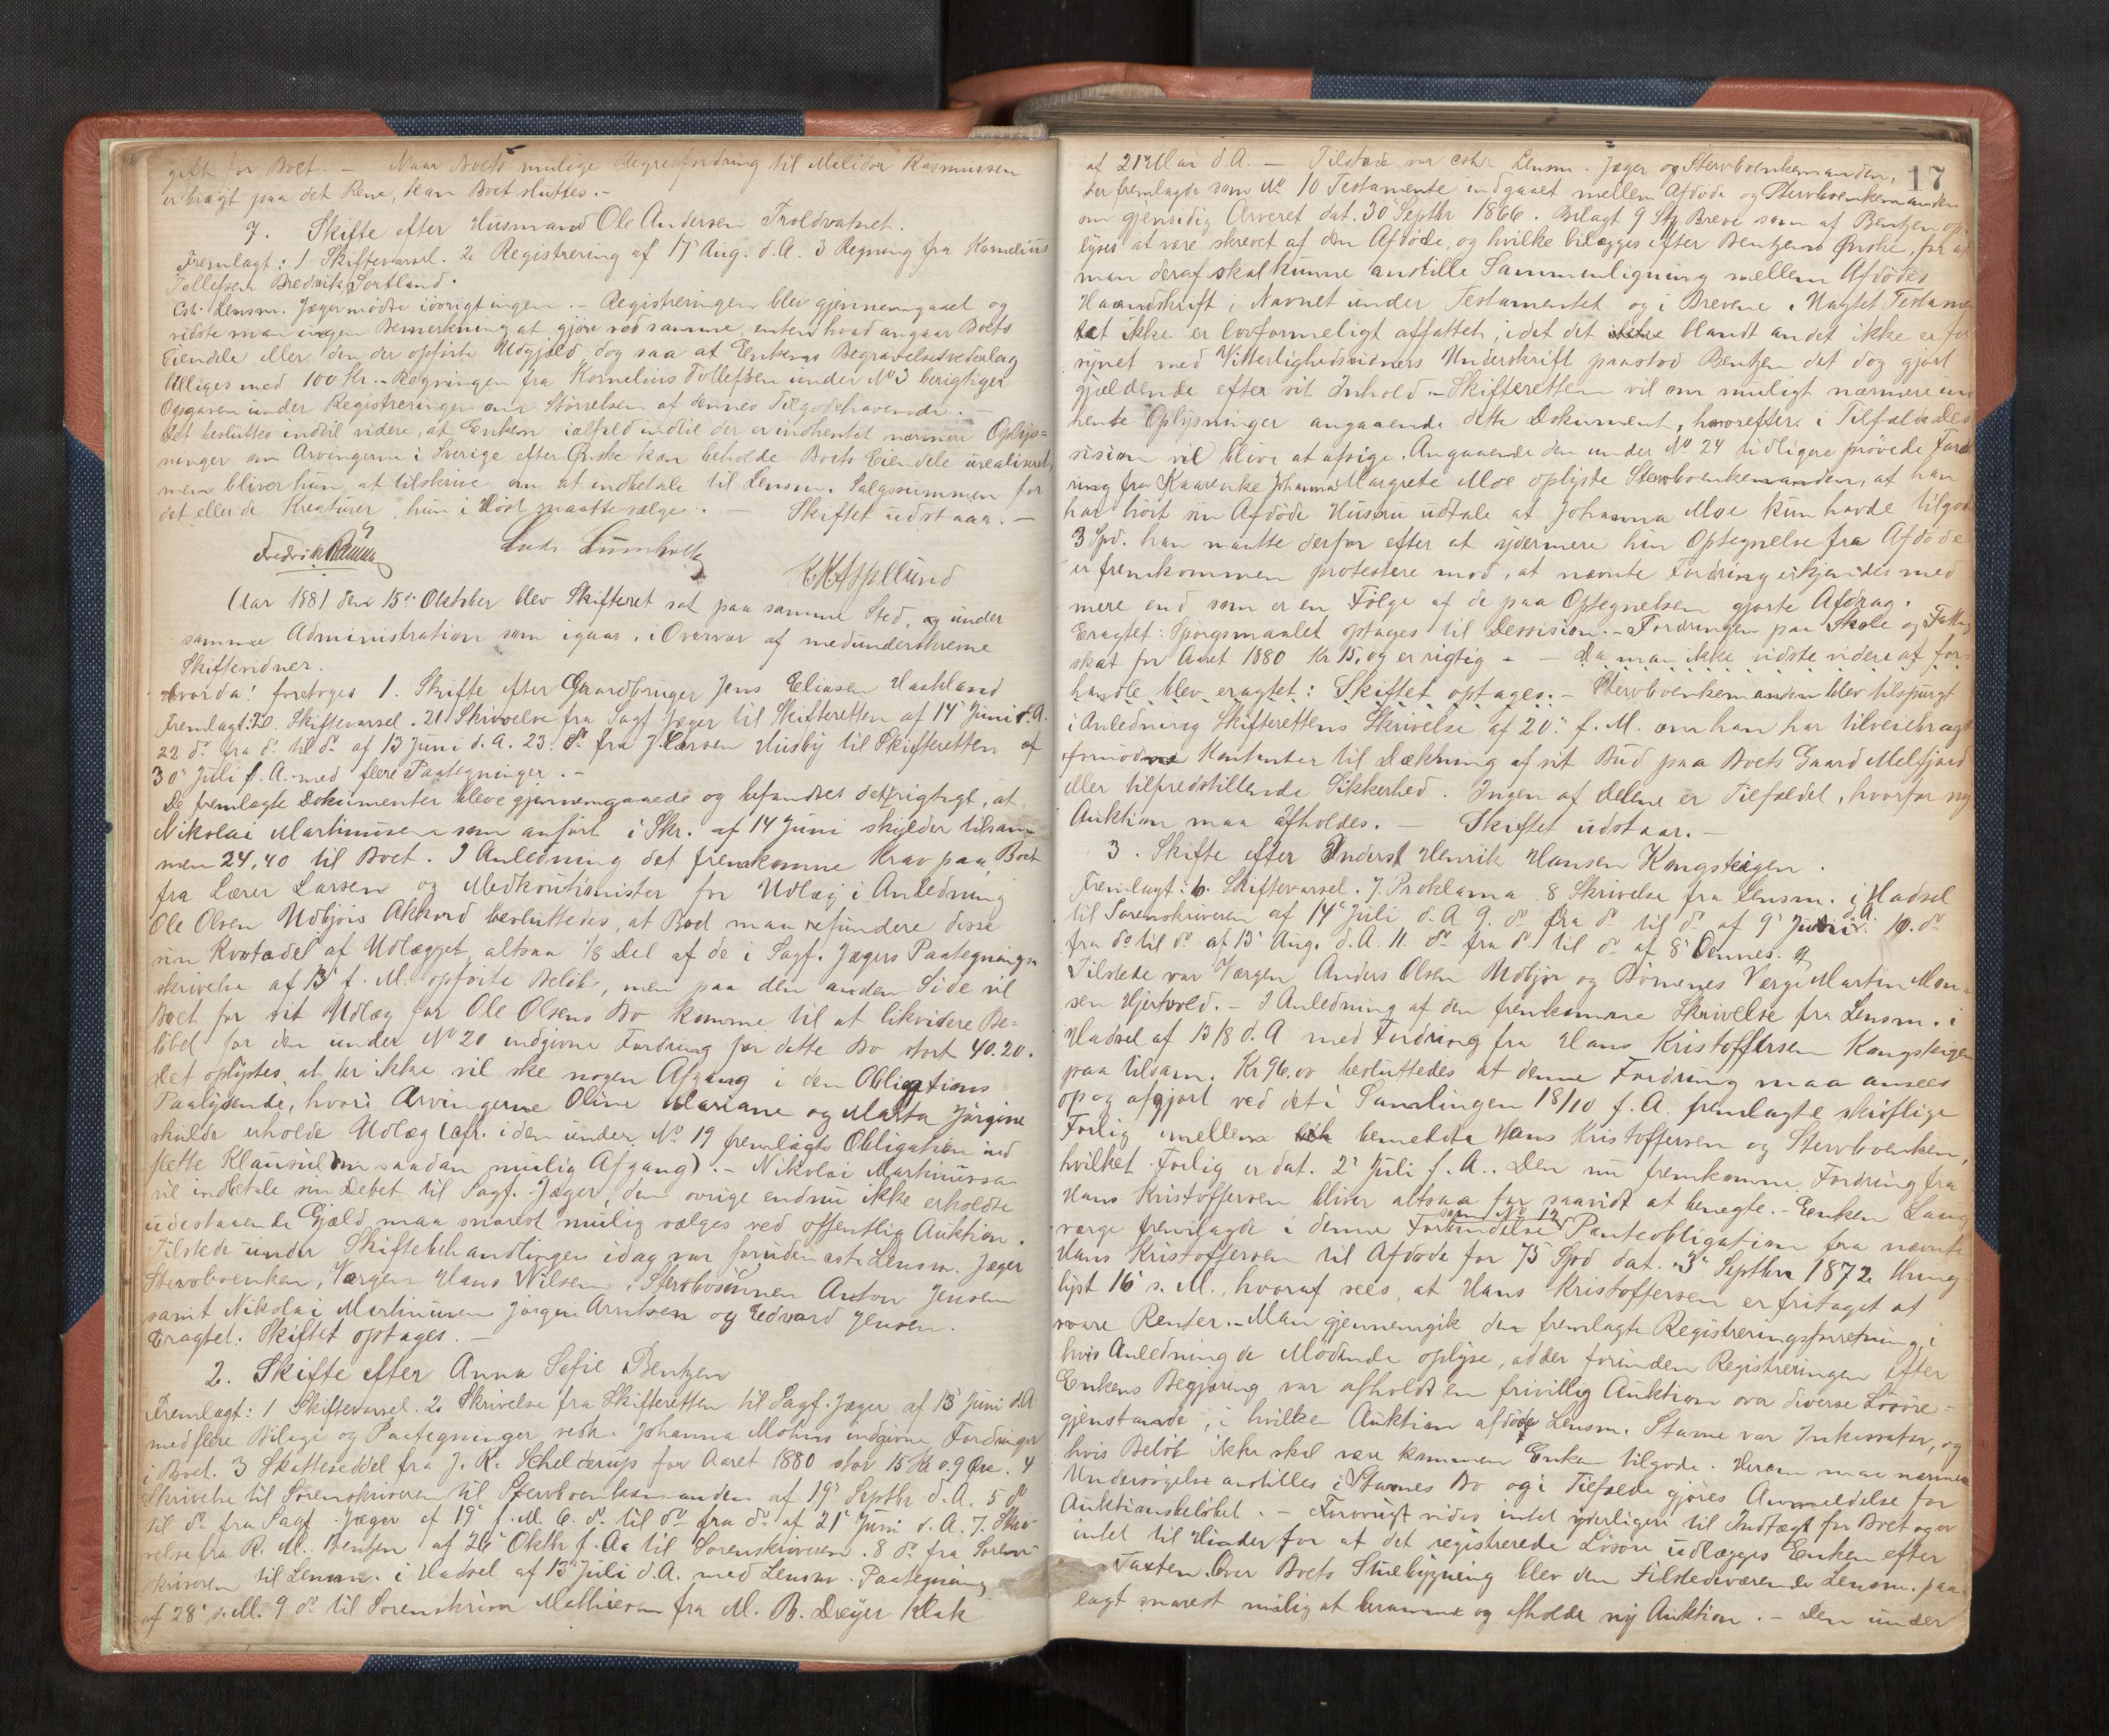 gift for Boet. — Naar Boets mulige Regresfordring til Melidor Rasmussen
er bragt paa det Rene, kan Boet sluttes. -
7. Skifte efter Husmand Ole Andersen Troldvatnet.
Fremlagt: 1 Skiftevarsel. 2 Registrering af 17' Aug. d.A. 3 Regning fra Kornelius
Tollefsen Bredvik, Sortland.
Cst. Lensm. Jæger mødte iøvrigt ingen. — Registreringen blev gjennemgaaet og
vidste man ingen Bemerkning at gjøre ved samme, enten hvad angaar Boets
Eiendele eller den der opførte Udgjæld dog saa at Enkens Begravelsesvederlag
billiges med 100 Kr. - Regningen fra Kornelius Tollefsen under No 3 berigtiger
Opgaven under Registreringen om Størrelsen af dennes Tilgodehavende. -
Det besluttes indtil videre, at Enken ialfald indtil der er indhentet nærmere Oplys=
ninger om Arvingerne i Sverige efter Ønske kan beholde Boets Eiendele urealiseret,
men bliver hun at tilskrive om at indbetale til Lensm. Salgssummen for
det eller de Kreaturer, hun i Høst maatte sælge. — Skiftet udstaar. —
Fredrik
Lumholtz
K. K. Asplund
Aar 1881 den 15de Oktober blev Skifteret sat paa samme Sted, og under
samme Administration som igaar, i Overvær af medunderskrevne
Skiftevidner.
Hvorda: foretoges 1. Skifte efter Gaardbruger Jens Eliasen Haakland
Fremlagt: 20. Skiftevarsel. 21 Skrivelse fra Sagf. Jæger til Skifteretten af 14' Juni d.A.
22 do fra do til do af 13 Juni d.A. 23. do fra J. Larsen Husby til Skifteretten af
30' Juli f.A. med flere Paategninger. -
De fremlagte Dokumenter bleve gjennemgaaede og befandtes det rigtigt, at
Nikolai Martinusen som anført i Skr. af 14 Juni skylder tilsam
men 24,40 til Boet. I Anledning det fremkomne Krav paa Boet
fra Lærer Larsen og Medkautionister for Udlæg i Anledning
Ole Olsen Udbjörs Akkord besluttedes, at Boet maa refundere disse
sin Kvotadel af Udlægget, altsaa 1/8 Del af de i Sagf. Jægers Paategnings
skrivelse af 13' f.M. opførte Beløb, men paa den anden Side vil
Boet for sit Udlæg for Ole Olsens Bo komme til at likvidere Be=
løbet for den under No 20 indgivne Fordring for dette Bo stort 40.20.
Det oplystes, at der ikke vil ske nogen Afgang i den Obligations
Paalydende, hvori Arvingerne Oline Mariane og Marta Jørgine
skulde erholde Udlæg (cfr. i den under No 19 fremlagte Obligation ind
flette Klausul om saadan mulig Afgang). - Nikolai Martinussen
vil indbetale sin Debet til Sagf. Jæger, den øvrige endnu ikke erholdte
udestaaende Gjæld maa snarest mulig sælges ved offentlig Auktion.
Tilstede under Skiftebehandlingen idag var foruden cst. Lensm. Jæger
Stervboenken, Værgen Hans Nilsen, Stervbosønnen Anton Jensen
samt Nikolai Martinusen Jørgen Arntsen og Edvard Jensen.
Eragtet. Skiftet optages. —
2. Skifte efter Anna Sofie Bentzen
Fremlagt: 1 Skiftevarsel. 2 Skrivelse fra Skifteretten til Sagf. Jæger af 13' Juni d.A
med flere Bilage og Paategninger vedk. Johanna Mohns indgivne Fordringer
i Boet. 3 Skatteseddel fra J. R. Schelderup for Aaret 1880 stor 15 Kr o. 9 Øre. 4
Skrivelse til Sorenskriveren til Stervboenkemanden af 19' Septbr d.A. 5 do
til do fra Sagf Jæger af 19' f.M. 6. do til do fra do af 21' Juni d.A. 7. Skri-
velse fra R. M. Bentzen af 26' Oktbr f.Aa til Sorenskriveren. 8 do fra Soren-
skriveren til Lensm. i Hadsel af 13' Juli d.A. med Lensm. Paategning
af 28' s.M. 9 do til Sorenskriver Mathiesen fra M. B. Dreyer Klak
17
af 21' Mai d.A. — Tilstede var cst. Lensm. Jæger og Stervboenkemanden,
der fremlagde som No 10 Testamente indgaaet mellem Afdøde og Stervboenkemanden
om gjensidig Arveret dat. 30' Septbr 1866. Bilagt 9 Stk Breve som af Bentzen op
lyses at være skrevet af den Afdøde, og hvilke bilægges efter Bentzens Ønske, for at
man deraf skal kunne anstille Sammenligning mellem Afdødes
Haandskrift i Navnet under Testamentet og i Brevene. Uagtet Testame
tet ikke er lovformeligt affattet, idet det blandt andet ikke er for
synet med Vitterlighedsvidners Underskrift paastod Bentzen det dog gjort
gjældende efter sit Inhold. - Skifteretten vil om muligt nærmere ind
hente Oplysninger angaaende dette Dokument, hvorefter i Tilfælde Des
sision vil blive at afsige. Angaaende den under No 24 tidligere prøvede Ford
ring fra Kaarenke Johanna Margrete Moe oplyste Stervboenkemanden, at han
har hørt sin Afdøde Hustru udtale at Johanna Moe kun havde tilgode
3 Spd. han maatte derfor efter at ydermere hin Optegnelse fra Afdøde
er fremkommen protestere mod, at nævnte Fordring erkjendes med
mere end som er en Følge af de paa Optegnelsen gjorte Afdrag.
Eragtet: Spørgsmaalet optages til Dessision. - Fordringen paa Skole og Fattig
skat for Aaret 1880 Kr 15, og er rigtig. — Da man ikke vidste videre at for-
handle blev eragtet: Skiftet optages. - Stervboenkemanden blev tilspurgt
i Anledning Skifterettens Skrivelse af 20' f.M. om han har tilveiebragt
fornødne Kontanter til Dækning af sit Bud paa Boets Gaard Melfjord
eller tilfredstillende Sikkerhed. Ingen af Delene er Tilfældet, hvorfor ny
Auktion maa afholdes. — Skiftet udstaar. —
3. Skifte efter Inderst Henrik Hansen Kongsteigen.
Fremlagt: 6. Skiftevarsel. 7. Proklama 8 Skrivelse fra Lensm. i Hadsel
til Sorenskriveren af 14' Juli d.A 9. do fra do til do af 9' Juni d.A. 10. do
fra do til do af 13' Aug. d.A. 11. do fra do til do af 8' Dennes.
Tilstede var Værgen Anders Olsen Udbjör og Børnenes Værge Martin Mon=
sen Hjertvold. - I Anledning af den fremkomne Skrivelse fra Lensm. i
Hadsel af 13/8 d.A med Fordring fra Hans Kristoffersen Kongsteigen
paa tilsam. Kr 96.00 besluttedes at denne Fordring maa ansees
op og afgjort ved det i Samlingen 18/10 f.A. fremlagte skriftlige
Forlig mellem bemeldte Hans Kristoffersen og Stervboenken,
hvilket Forlig er dat. 2' Juli f.A.. Den nu fremkomne Fordring fra
Hans Kristoffersen bliver altsaa for saavidt at benegte. - Enken Laug
værge fremlagde i denne Forbindelse som No 12 Panteobligation fra nævnte
Hans Kristoffersen til Afdøde for 75 Spd dat. 3' Septbr 1872 thing-
lyst 16' s.M., hvoraf sees, at Hans Kristoffersen er fritaget at
svare Renter. - Man gjennemgik den fremlagte Registreringsforretning, i
hvis Anledning de Mødende oplyse, at der foruden Registreringen efter
Enkens Begjæring var afholdt en frivillig Auktion over diverse Løsøre=
gjenstande, i hvilken Auktion afdøde Lensm. Stavne var Inkassator, og
hvis Beløb ikke skal være kommen Enken tilgode. Herom maa nærmere
Undersøgelse anstilles i Stavnes Bo og i Tilfælde gjøres Anmeldelse for
Auktionsbeløbet. - Forøvrigt vides intet yderligere til Indtægt for Boet og er
intet til Hinder for at det registrerede Løsøre udlægges Enken efter
Taxten. Over Boets Stuebygning blev den tilstedeværende Lensm. paa-
lagt snarest mulig at beramme og afholde ny Auktion. - Den under